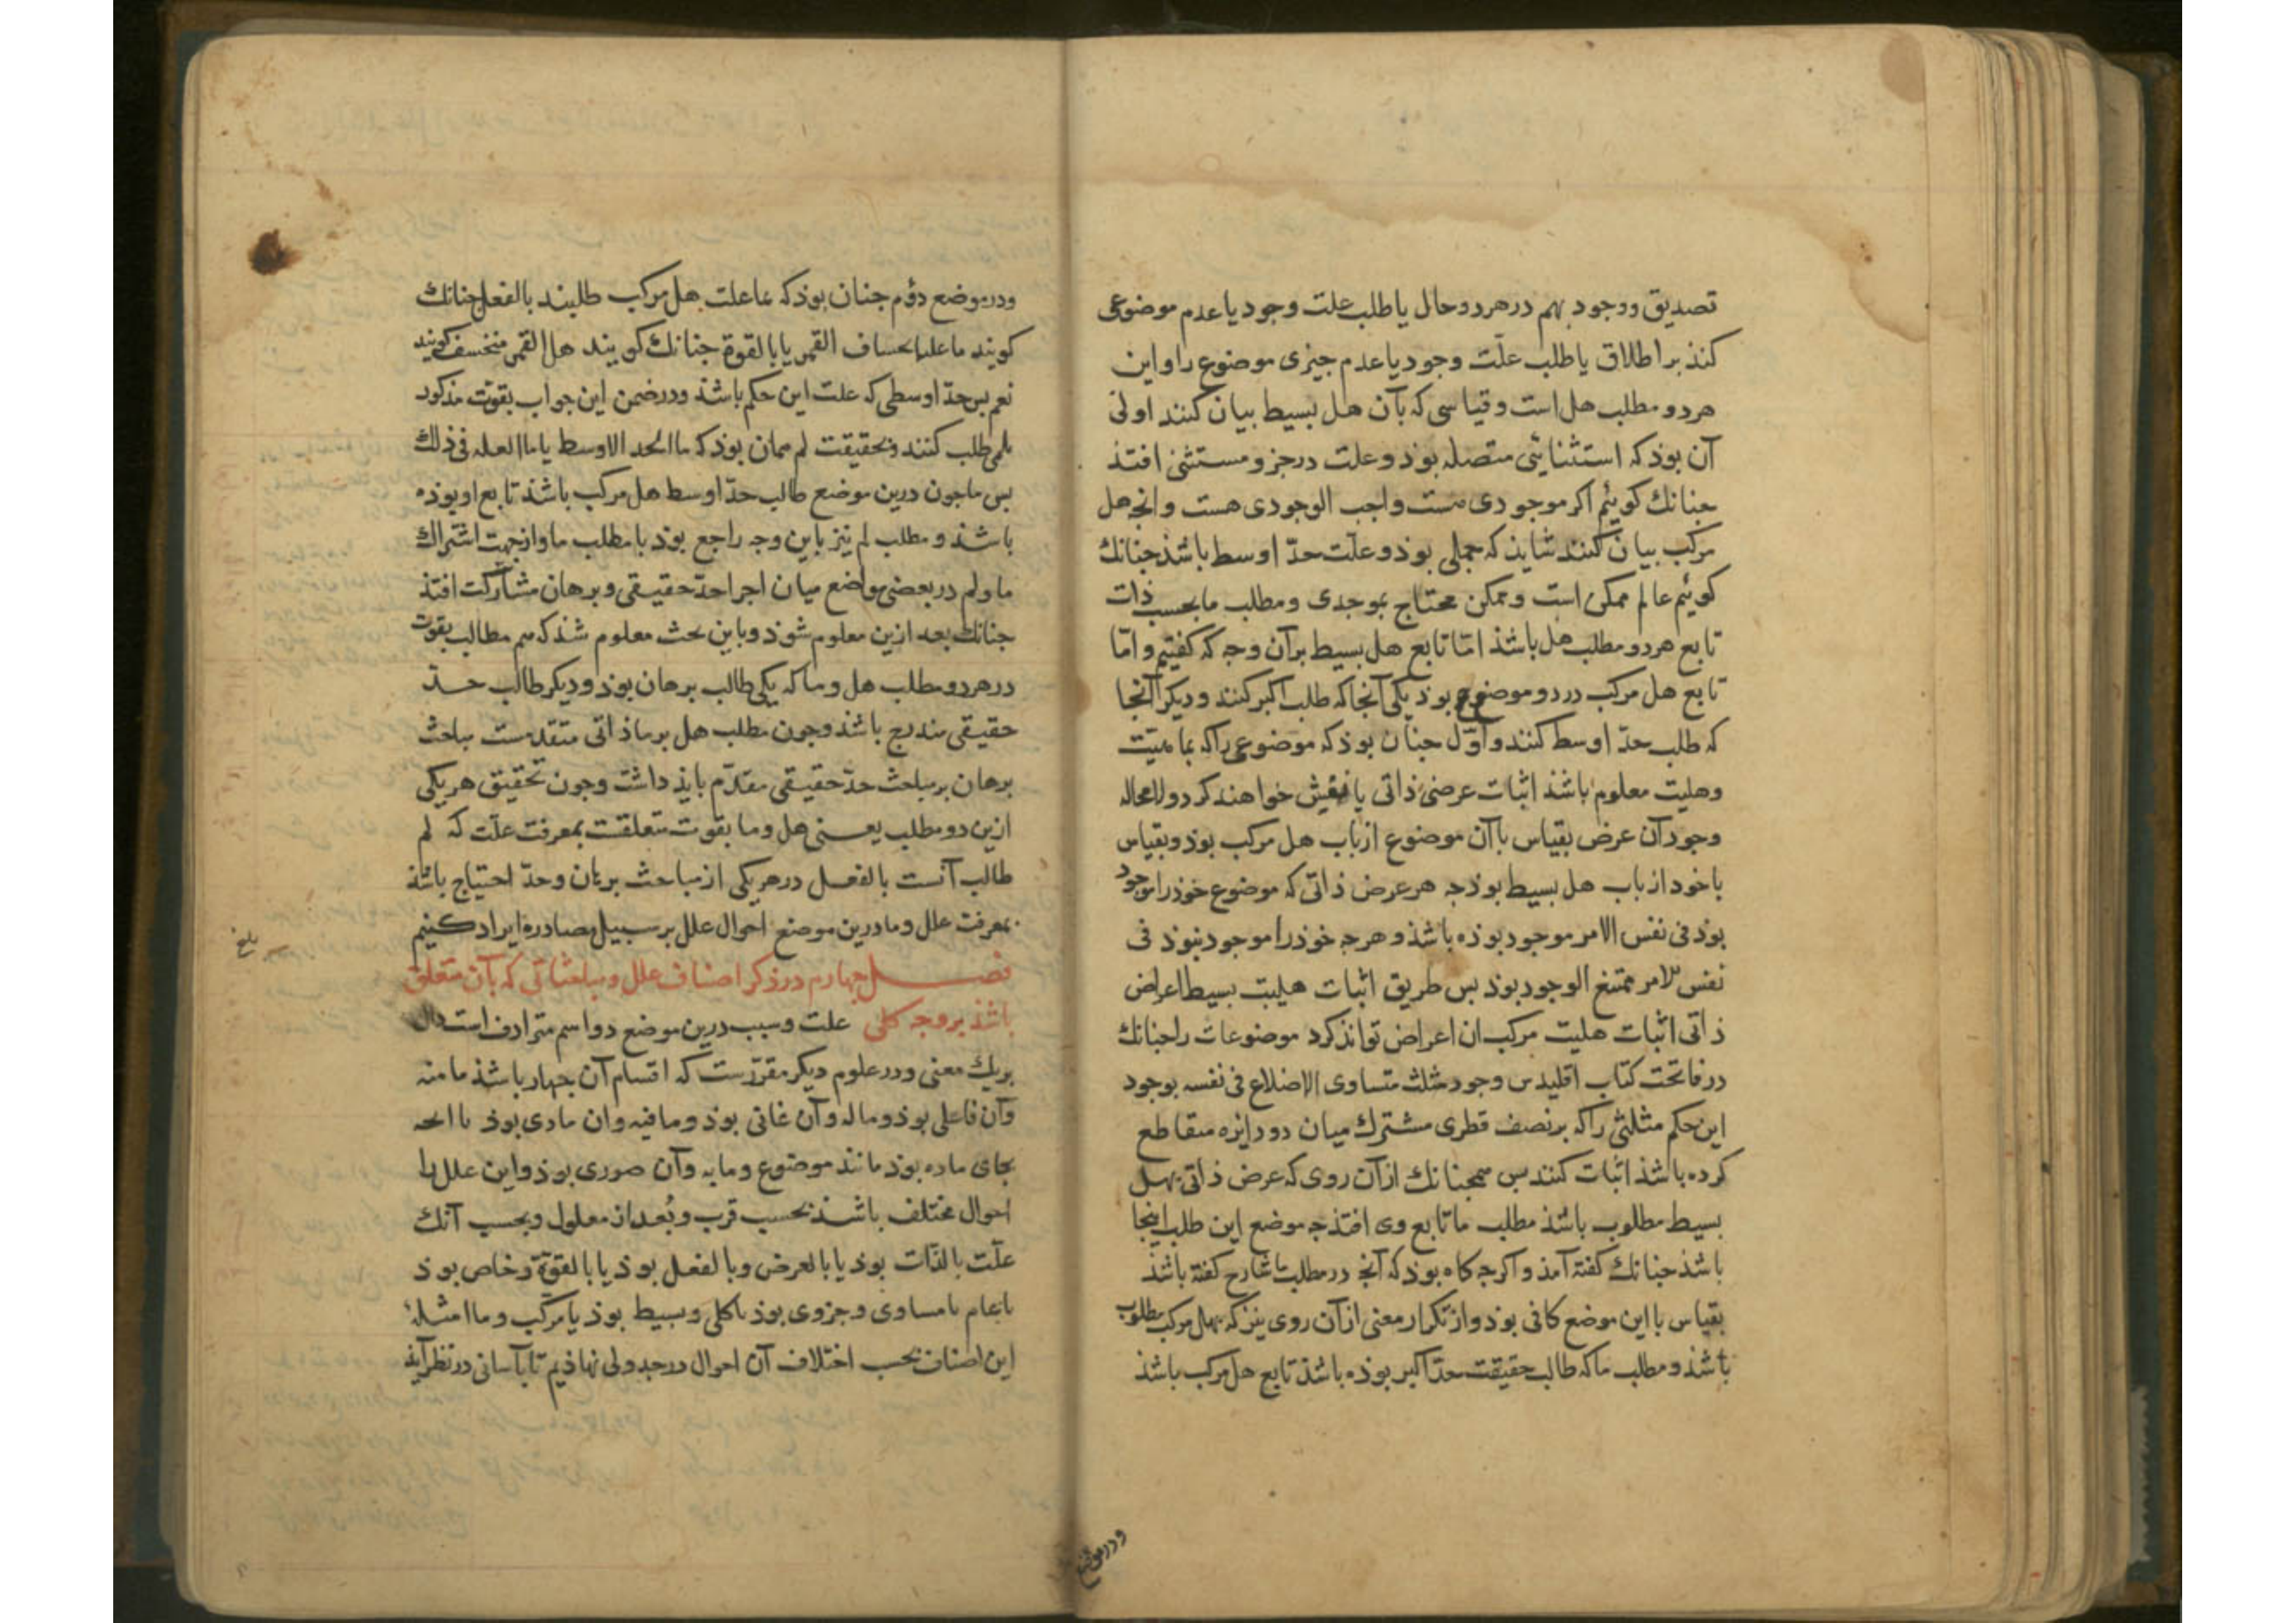 تصدیق ووجود بهم درهردوحال یاطلب علت وجود یاعدم موضوعی
کنذ براطلاق یاطلب علّت وجود یاعدم جیزی موضوع را واین
هردو مطلب هل است وقیاسی که بآن هل بسیط بیان کنند اولی
آن بوذ که استثنائی متصله بوذ وعلت درجزو مستثنی افتذ
جنانك کوئیم اکر موجودی هست واجب الوجودی هست وانجه هل
مرکب بیان کنند شاید که حملی بوذ وعلّت حدّ اوسط باشذ جنانك
کوئیم عالم ممکن است وممکن محتاج بموجدی ومطلب ما بحسب ذات
تابع هردو مطلب هل باشذ امّا تابع هل بسیط برآن وجه که کفتیم وامّا
تابع هل مرکب دردو موضوع بوذ یکی آنجا که طلب اکبر کنند ودیکر آنجا
که طلب حدّ اوسط کنند واوّل جنان بوذ که موضوعی را که بماهیّت
وهلیت معلوم باشذ اثبات عرضی ذاتی یا نفیش خواهند کرد ولامحاله
وجود آن عرض بقیاس باآن موضوع ازباب هل مرکب بوذ وبقیاس
باخود ازباب هل بسیط بوذ جه هر عرض ذاتی که موضوع خوذ را موجود
بوذ فی نفس الامر موجود بوذه باشذ وهرجه خوذ را موجود نبوذ فی
نفس الامر ممتنع الوجود بوذ بس طریق اثبات هلیت بسیط اعراض
ذاتی اثبات هلیت مرکب ان اعراض تواند کرد موضوعات را جنانك
درفاتحت کتاب اقلیدس وجود مثلث متساوی الاضلاع فی نفسه بوجود
این حکم مثلثی را که برنصف قطری مشترك میان دو دایره متقاطع
کرده باشذ اثبات کنند بس همجنانك ازآن روی که عرض ذاتی بهل
بسیط مطلوب باشذ مطلب ما تابع وی افتذ جه موضع این طلب اینجا
باشذ جنانك کفته آمذ واکرجه کاه بوذ که آنج درمطلب ما شارح کفته باشذ
بقیاس بااین موضع کافی بوذ وازتکرار معنی ازآن روی نیز که بهل مرکب مطلوب
باشذ ومطلب ما که طالب حقیقت حدّ اکبر بوذه باشذ تابع هل مرکب باشذ
ودرموضع
ودرموضع دوّم جنان بوذ که ما علت هل مرکب طلبند بالفعل جنانك
کویند ما علة انحساف القمر یا بالقوة جنانك کویند هل القمر منخسف کویند
نعم بس حدّ اوسطی که علت این حکم باشذ ودرضمن این جواب بقوت مذکور
بلمی طلب کنند وبحقیقت لم همان بوذ که ما الحد الاوسط یا ما العله فی ذلك
بس ما جون درین موضع طالب حدّ اوسط هل مرکب باشذ تابع او بوذه
باشذ ومطلب لم نیز باین وجه راجع بوذ بامطلب ما وازجهت اشتراك
ما ولم دربعضی مواضع میان اجزا حدّ حقیقی وبرهان مشارکت افتذ
جنانك بعد ازین معلوم شوذ وباین بحث معلوم شذ که همه مطالب بقوت
درهردو مطلب هل وما که یکی طالب برهان بوذ ودیکر طالب حدّ
حقیقی مندرج باشذ وجون مطلب هل برما ذاتی متقدمست مباحث
برهان برمباحث حدّ حقیقی مقدّم بایذ داشت وجون تحقیق هریکی
ازین دو مطلب یعنی هل وما بقوت متعلقست بمعرفت علّت که لم
طالب آنست بالفعل درهریکی ازمباحث برهان وحدّ احتیاج باشذ
بمعرفت علل وما درین موضع احوال علل برسبیل مصادره ایراد کنیم
بلغ
فصل جهارم درذکر اصناف علل ومباحثاتی که بآن متعلق
باشذ بروجه کلی علت وسبب درین موضع دو اسم مترادف است دال
بریك معنی ودرعلوم دیکر مقرّرست که اقسام آن جهار باشذ ما منه
وآن فاعلی بوذ وما له وآن غائی بوذ وما فیه وان مادی بوذ یا انجه
بجای ماده بوذ مانند موضوع وما به وآن صوری بوذ واین علل را
احوال مختلف باشذ بحسب قرب وبُعد از معلول وبحسب آنك
علّت بالذّات بوذ یا بالعرض وبالفعل بوذ یا بالقوّة وخاص بوذ
یا عام یا مساوی وجزوی بوذ یا کلی وبسیط بوذ یا مرکب وما امثلهٔ
این اصناف بحسب اختلاف آن احوال درجدولی نهاذیم تا بآسانی درنظر آیذ